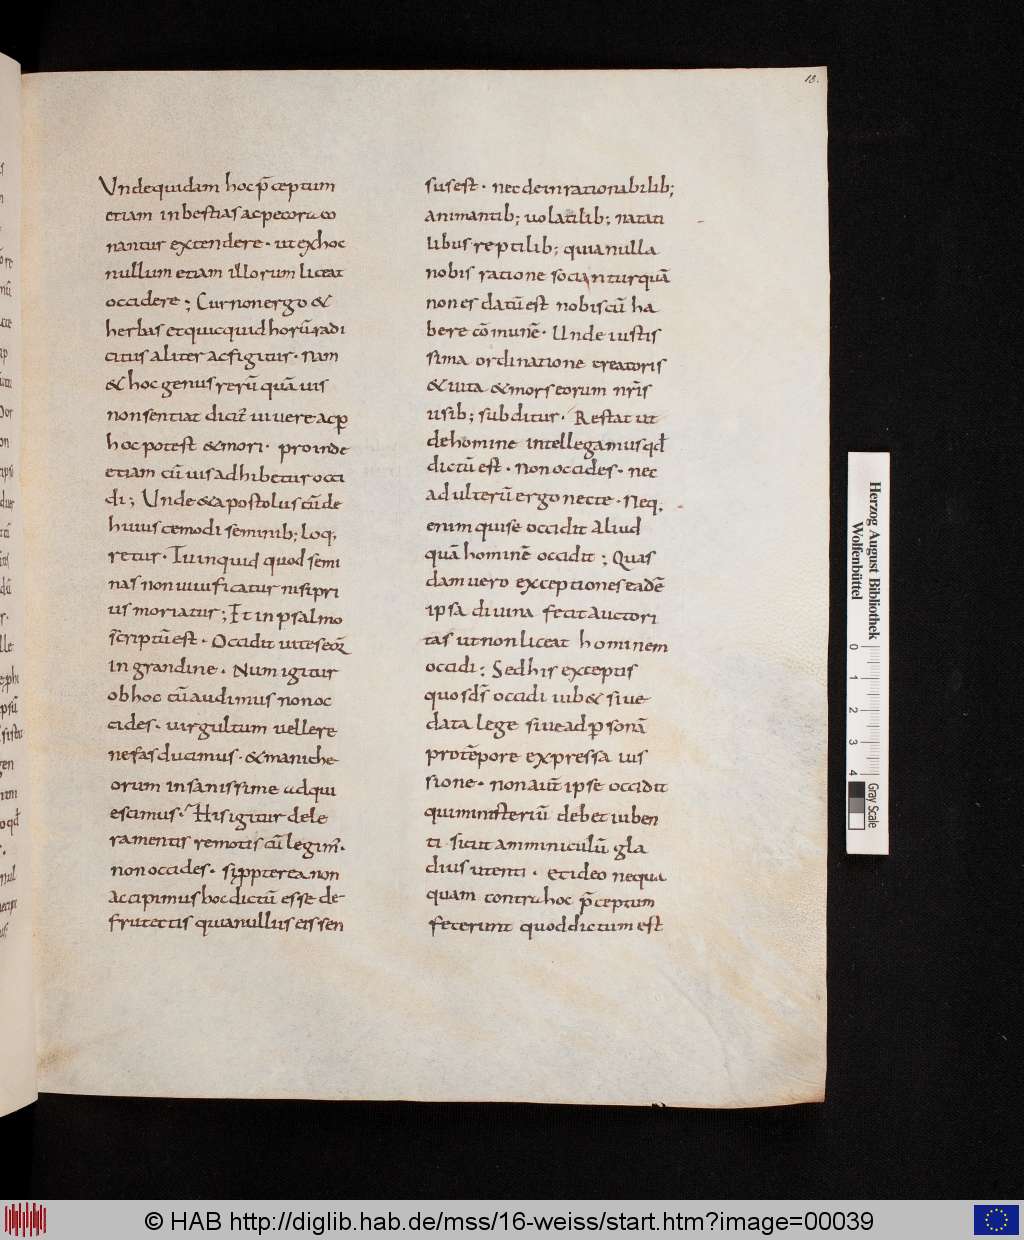 13.
Undequidam hoc p̄ceptum
etiam inbestias acpecora co
nantur extendere · ut exhoc
nullum etiam illorum liceat
occidere ; Cur non ergo &
herbas et quicquid horū radi
citus aliter acfigitur · nam
& hoc genus rerū quā uis
non sentiat dicit̄ uiuere acp̄
hoc potest & mori · proinde
etiam cū uis adhibetur occi
di ; Unde & apostolus cū de
huius cemodi seminib; loq,
retur · Tu inquid quod semi
nas non uiuificatur nisi pri
us moriatur ; Et in psalmo
scriptū est · Occidit uites eoꝝ
in grandine · Num igitur
ob hoc cū audimus non oc
cides · uirgultum uellere
nefas ducimus · & maniche
orum insanissime adqui
escimus · His igitur dele
ramentis remotis cū legim̄ ·
non occides · si ppterea non
accipimus hoc dictū esse de
frutectis quia nullus eis sen
sus est · nec de inrationabilib;
animantib; uolatilib; natati
libus reptilib; quia nulla
nobis ratione socianturquā
non es datū est nobis cū ha
bere cōmunē · Unde iustis
sima ordinatione creatoris
& uita & mors eorum nr̄is
usib; subditur · Restat ut
dehomine intellegamus qd̄
dictū est · non occides · nec
adulterū ergo necte · Neq,
enim qui se occidit aliud
quā hominē occidit ; Quas
dam uero exceptiones eadē
ipsa diuina fecit auctori
tas ut non liceat hominem
occidi : Sed his exceptis
quos ds̄ occidi iub& siue
data lege siue ad p̱sonā
pro tēpore expressa ius
sione · non aut̄ ipse occidit
qui ministeriū debet iuben
ti sicut amminiculū gla
dius utenti · et ideo nequa
quam contra hoc p̄ceptum
fecerunt quod dictum est
Herzog August Bibliothek
Wolfenbüttel
0 1 2 3 4
Gray Scale
© HAB http://diglib.hab.de/mss/16-weiss/start.htm?image=00039